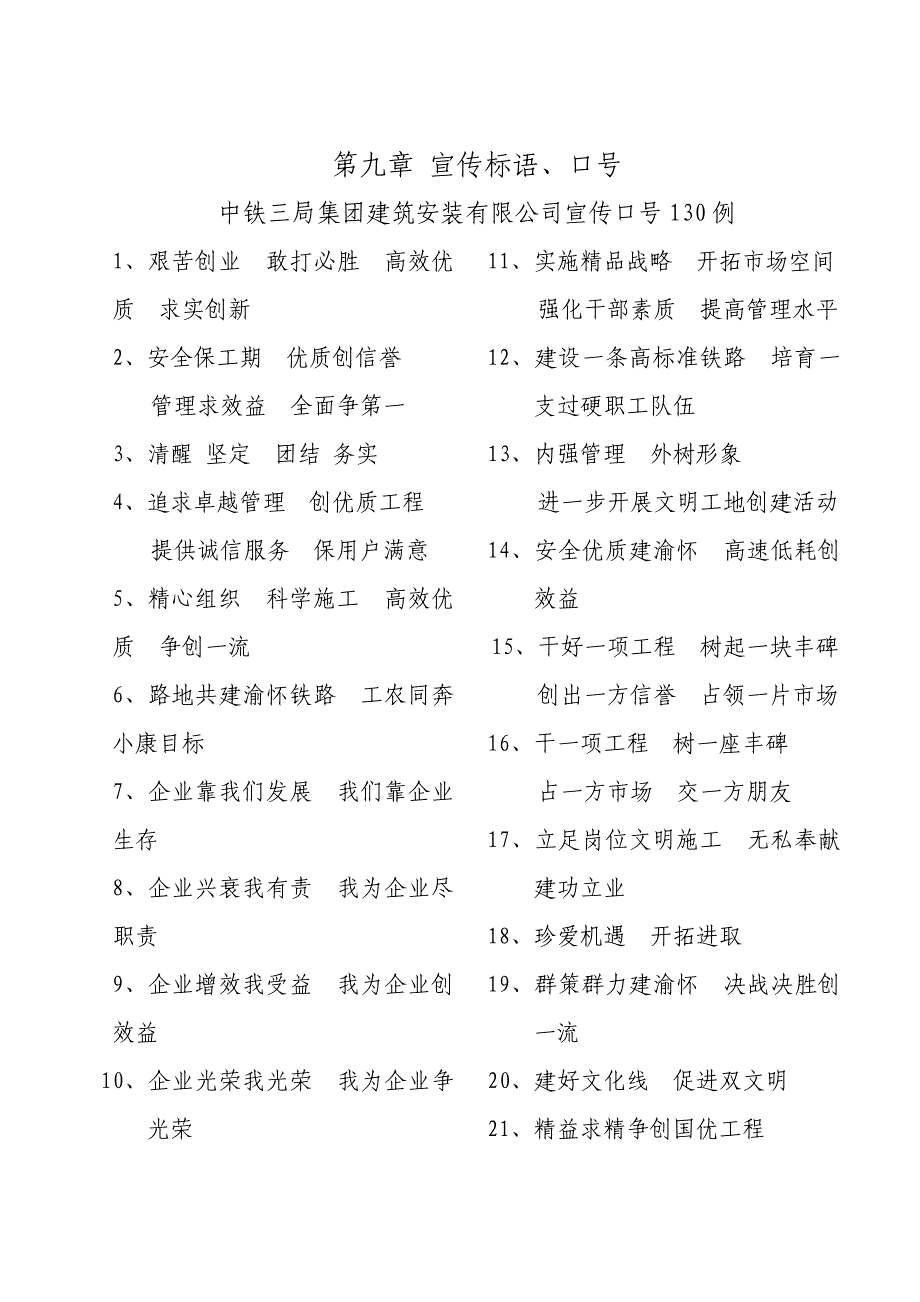 第九章 宣传标语、口号
中铁三局集团建筑安装有限公司宣传口号130例
1、艰苦创业　敢打必胜　高效优
质　求实创新
2、安全保工期　优质创信誉
管理求效益　全面争第一
3、清醒 坚定　团结 务实
4、追求卓越管理　创优质工程
提供诚信服务　保用户满意
5、精心组织　科学施工　高效优
质　争创一流
6、路地共建渝怀铁路　工农同奔
小康目标
7、企业靠我们发展　我们靠企业
生存
8、企业兴衰我有责　我为企业尽
职责
9、企业增效我受益　我为企业创
效益
10、企业光荣我光荣　我为企业争
光荣
11、实施精品战略　开拓市场空间
强化干部素质　提高管理水平
12、建设一条高标准铁路　培育一
支过硬职工队伍
13、内强管理　外树形象
进一步开展文明工地创建活动
14、安全优质建渝怀　高速低耗创
效益
15、干好一项工程　树起一块丰碑
创出一方信誉　占领一片市场
16、干一项工程　树一座丰碑
占一方市场　交一方朋友
17、立足岗位文明施工　无私奉献
建功立业
18、珍爱机遇　开拓进取
19、群策群力建渝怀　决战决胜创
一流
20、建好文化线　促进双文明
21、精益求精争创国优工程